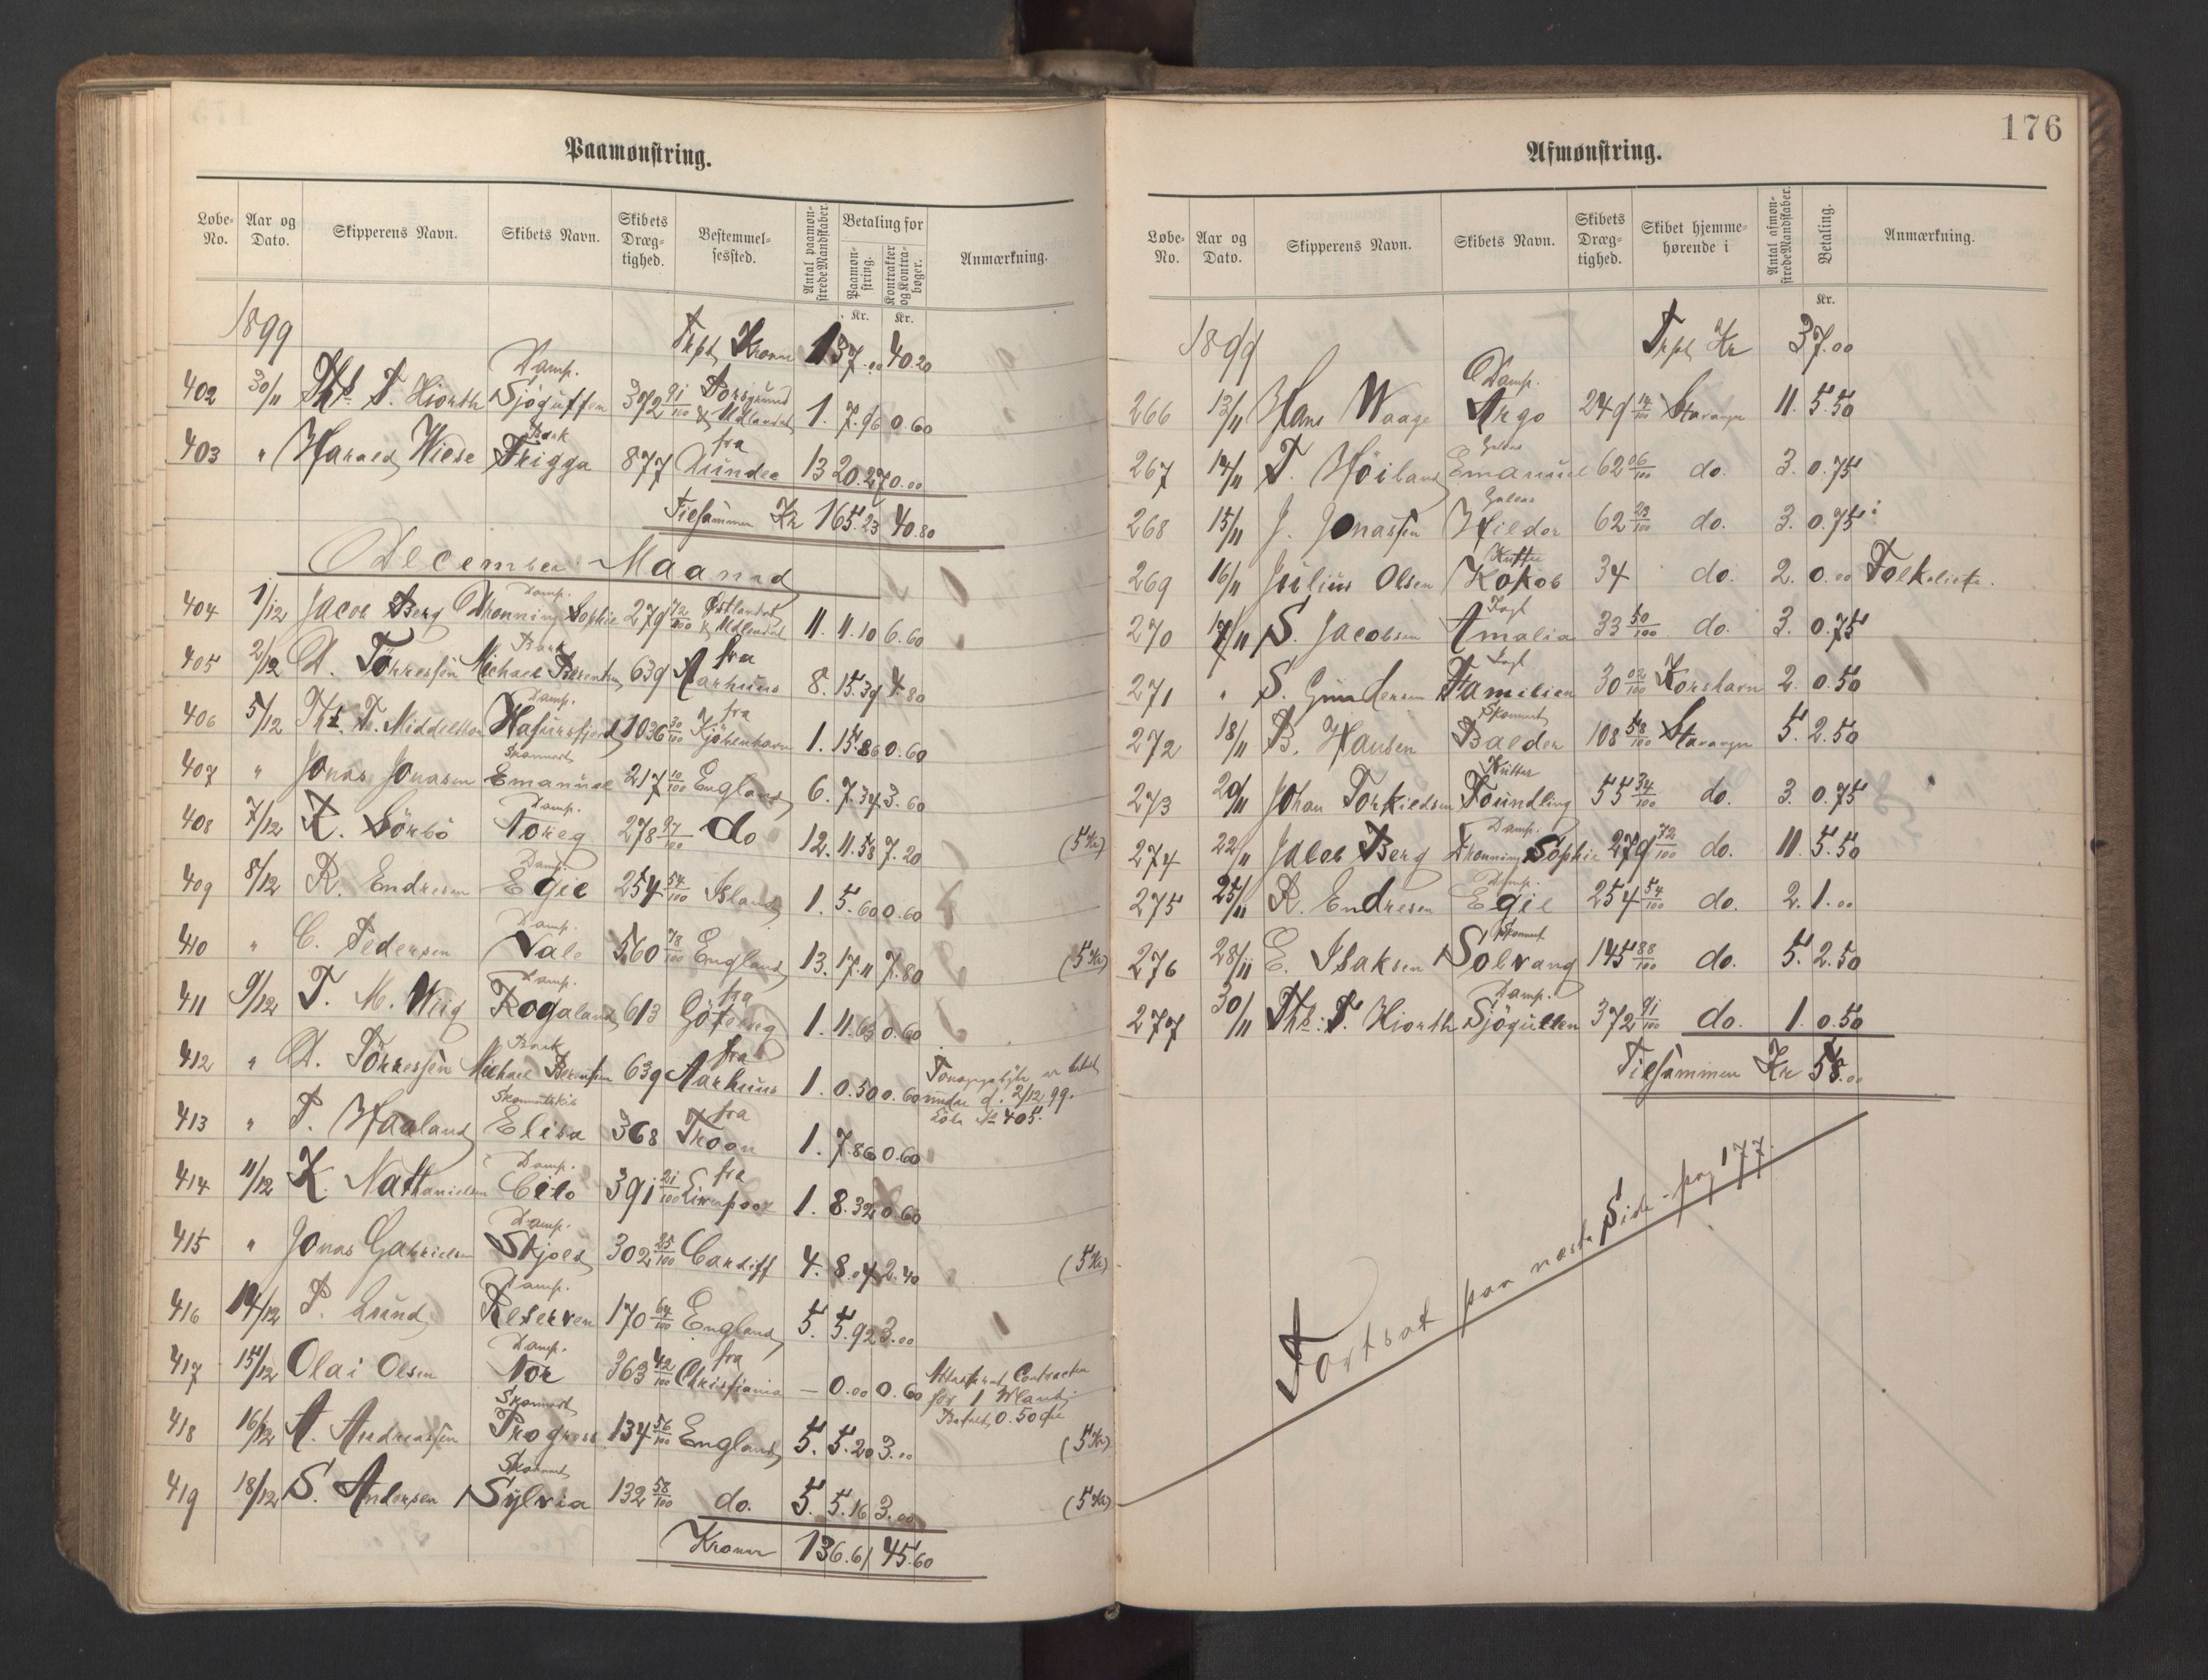 Paamønstring.
Løbe-No. Aar og Dato. Skipperens Navn. Skibets Navn. Skibets Dræg-tighed. Bestemmel-sessted. Antal paamøn-strede Mandskaber. Betaling for Paamøn-string. Kontrakter og Kontra-bøger. Anmærkning.
Kr. Kr.
1899 Trpt Kroner 137.00 40.20
402 30/11 Ths. T. Hiorth Damp. Sjögutten 372 91/100 Porsgrund & Udlandet 1. 7.96 0.60
403 " Harald Wiese Bark Frigga 877 fra Dundee 13 20.27 0.00
Tilsammen Kr 165.23 40.80
December Maaned
404 1/12 Jacob Berg Damp. Dronning Sophie 279 72/100 Östlandet & Udlandet 11. 11.10 6.60
405 2/12 D. Törressen Bark Michael Berentsen 639 fra Aarhuus 8. 15.39 4.80
406 5/12 Ths. Th. Middelthon Damp. Hafursfjord 1036 30/100 fra Kjöbenhavn 1. 15.86 0.60
407 " Jonas Jonasen Skonnert Emanuel 217 10/100 England 6. 7.34 3.60
408 7/12 K. Sörbö Damp. Noreg 278 97/100 do 12. 11.58 7.20 (5 Kr)
409 8/12 R. Endresen Damp. Egil 254 54/100 Island 1. 5.60 0.60
410 " C. Pedersen Damp. Vale 560 78/100 England 13. 17.11 7.80 (5 Kr)
411 9/12 T. M. Wiig Damp. Rogaland 613 fra Göteborg 1. 11.63 0.60
412 " D. Törressen Bark Michael Berentsen 639 fra Aarhuus 1 0.50 0.60 er betalt under d. 2/12 99. Löbe № 405.
413 " P. Haaland Skonnertskib Elisa 368 fra Troon 1. 7.86 0.60
414 11/12 K. Nathanielsen Damp. Cito 391 21/100 fra Liverpool 1. 8.32 0.60
415 " Jonas Gabrielsen Damp. Skjold 302 25/100 Cardiff 4. 8.04 2.40 (5 Kr)
416 14/12 P. Lund Damp. Reserven 170 64/100 England 5. 5.92 3.00
417 15/12 Olai Olsen Damp. Nor 363 42/100 fra Christiania — 0.00 0.60 Contracten for 1 Mand. Betalt 0.50 Öre
418 16/12 A. Andreassen Skonnert Progress 134 56/100 England 5. 5.20 3.00 (5 Kr)
419 18/12 S. Andersen Skonnert Sylvia 132 58/100 do. 5. 5.16 3.00 (5 Kr)
Kroner 136.61 45.60
176
Afmønstring.
Løbe-No. Aar og Dato. Skipperens Navn. Skibets Navn. Skibets Dræg-tighed. Skibet hjemme-hørende i Antal afmøn-strede Mandskaber. Betaling. Anmærkning.
Kr.
1899 Trpt Kr 37.00
266 13/11 Hans Waage Damp. Argo 249 14/100 Stavanger 11. 5.50
267 14/11 T. Höiland Galeas Emanuel 62 06/100 do. 3. 0.75
268 15/11 J. Jonassen Galeas Hildor 62 23/100 do. 3. 0.75
269 16/11 Julius Olsen Kutter Kokob 34 do. 2. 0.00 Folkeliste.
270 17/11 S. Jacobsen Jagt Amalia 33 50/100 do. 3. 0.75
271 " S. Gundersen Jagt Familien 30 02/100 Korshavn 2. 0.50
272 18/11 B. Hansen Skonnert Balder 108 58/100 Stavanger 5. 2.50
273 20/11 Johan Torkildsen Kutter Foundling 55 34/100 do. 3. 0.75
274 22/11 Jacob Berg Damp. Dronning Sophie 279 72/100 do. 11. 5.50
275 25/11 R. Endresen Damp. Egil 254 54/100 do. 2. 1.00
276 28/11 E. Isaksen Skonnert Solvang 145 88/100 do. 5. 2.50
277 30/11 Ths. T. Hiorth Damp. Sjögutten 372 91/100 do. 1. 0.50
Tilsammen Kr 58.00
Fortsat paa næste Side - pag 177.